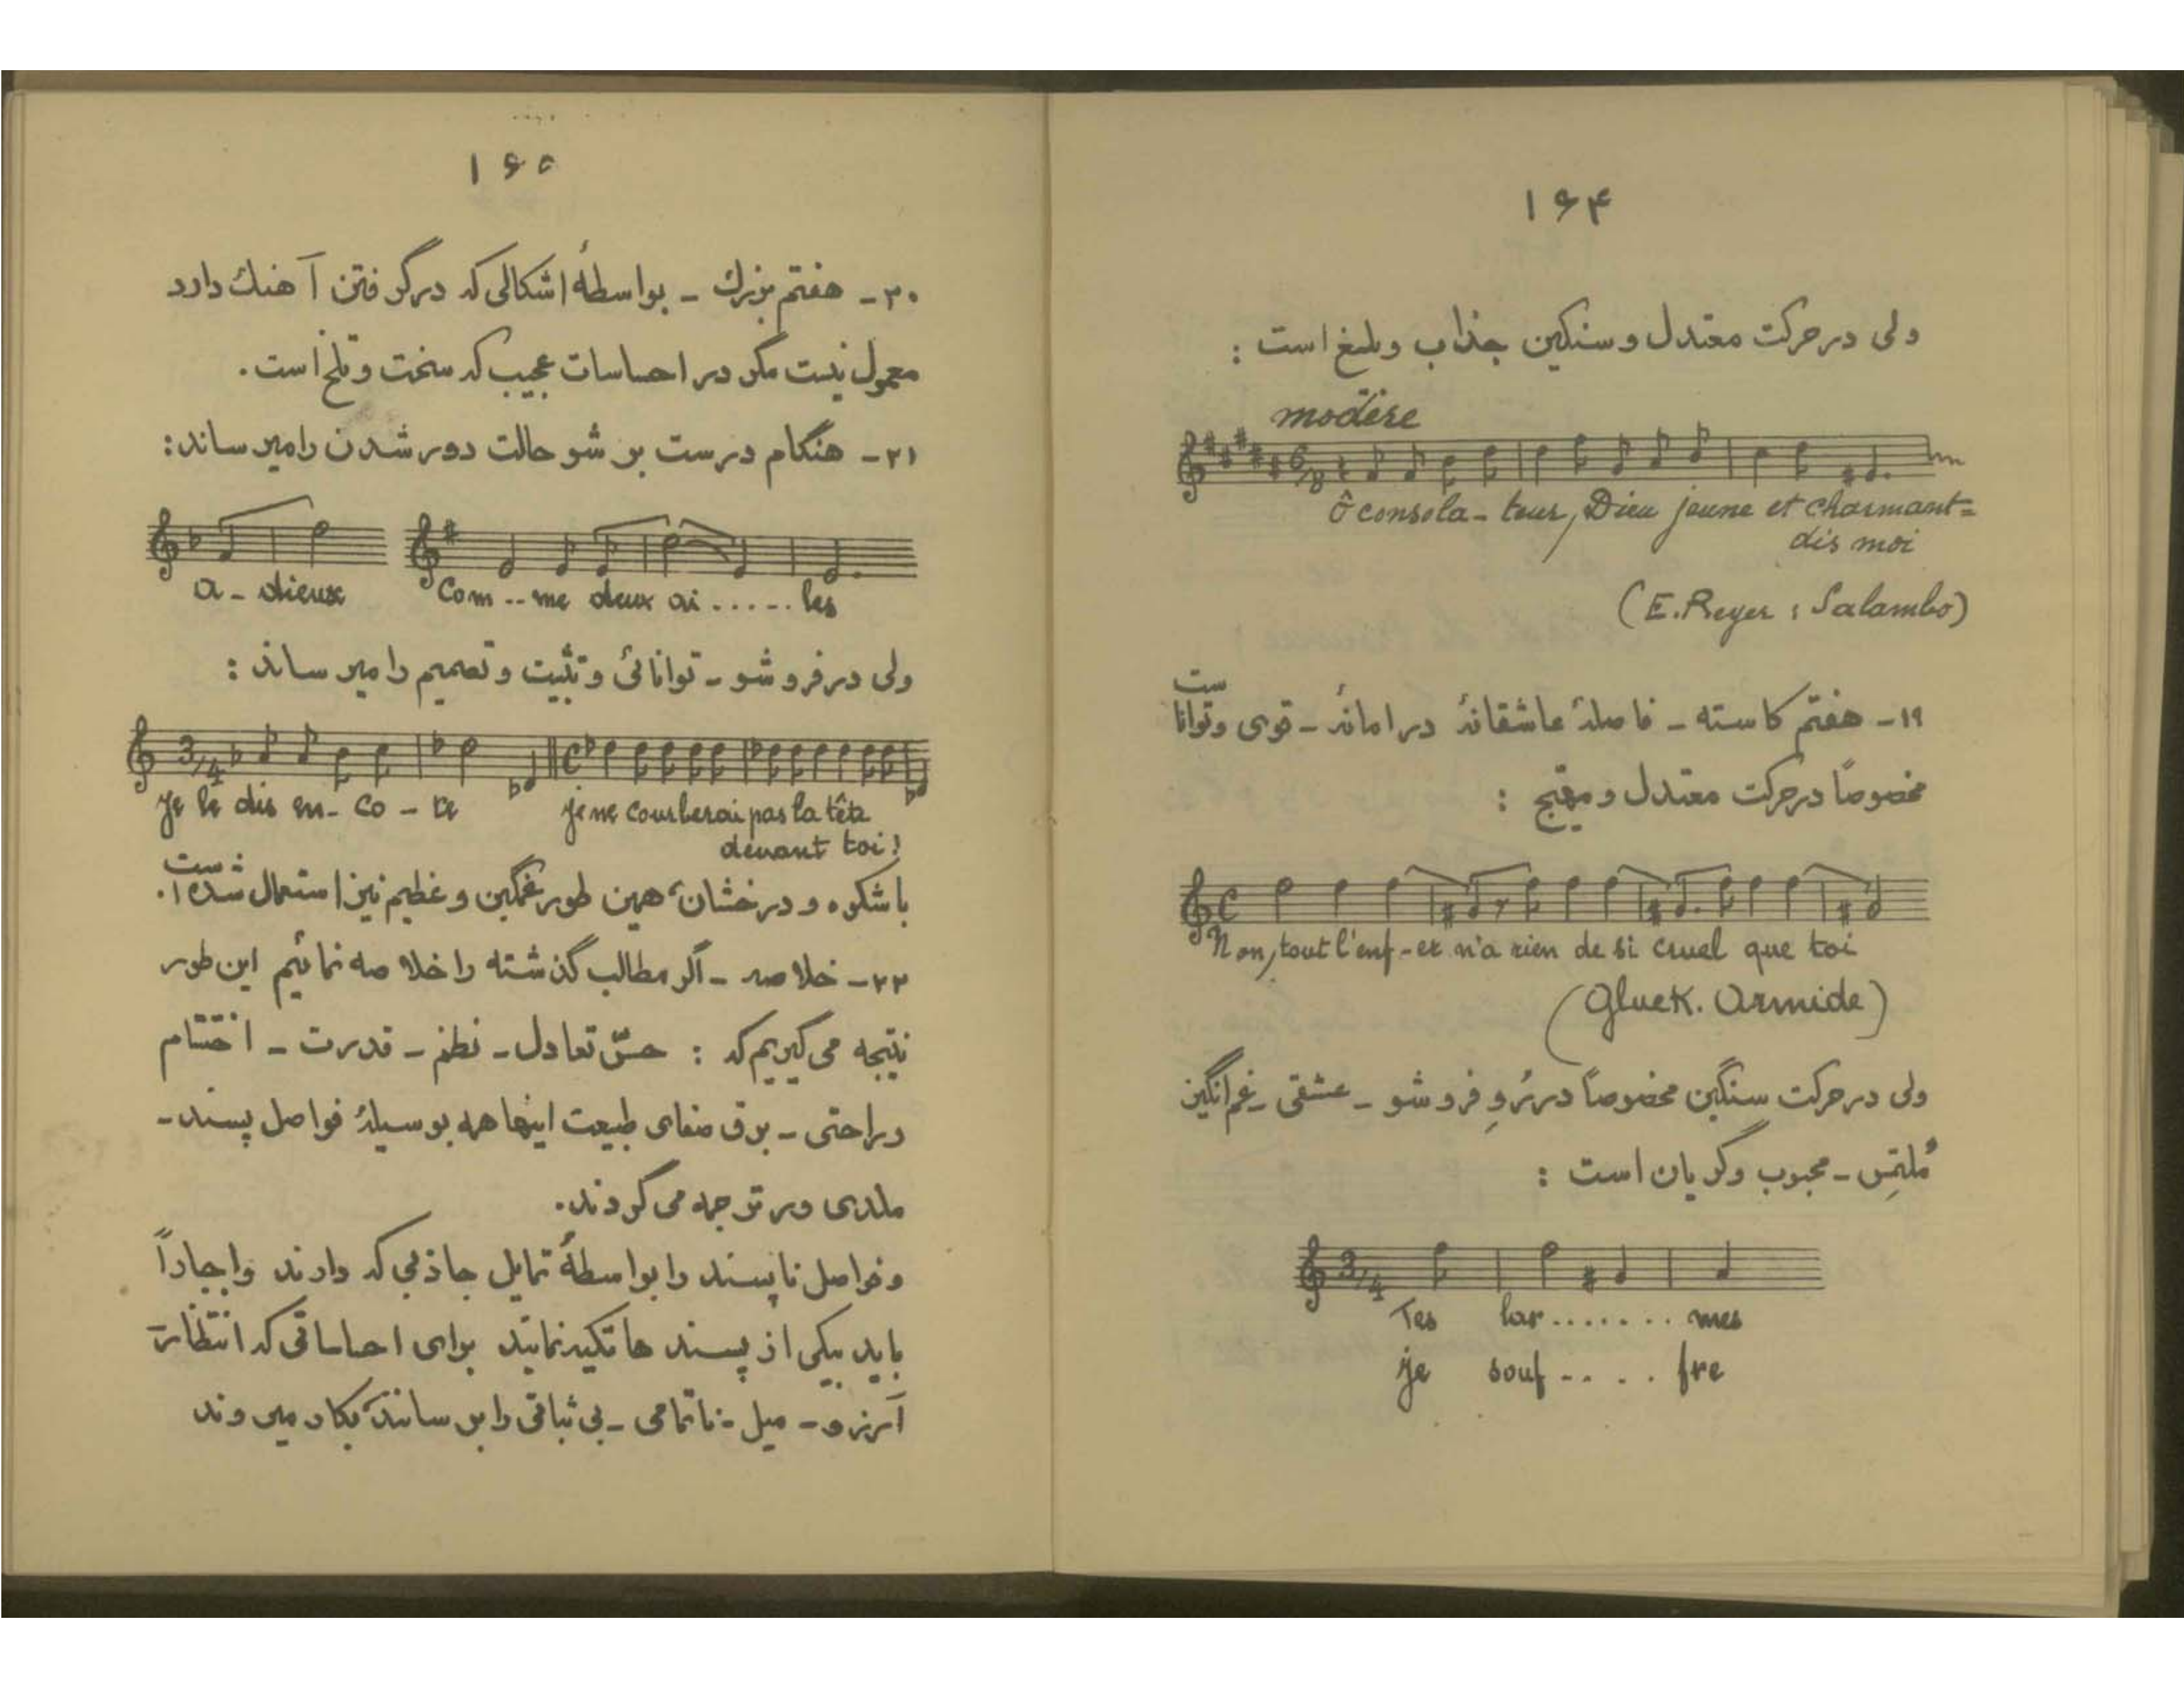 ۱۶۴
ولی در حرکت معتدل و سنگین جذاب و بلیغ است :
modère
Ô consola - teur, Dieu jeune et charmant =
dis moi
(E. Reyer : Salambo)
۱۹ - هفتم کاسته - فاصلهٔ عاشقانهٔ در امانهٔ - قوی و توانا ست
مخصوصاً در حرکت معتدل و مهیّج :
Non, tout l'enf - er n'a rien de si cruel que toi
(Gluck. Armide)
ولی در حرکت سنگین مخصوصاً در رُو فرو شو - عشقی - غم انگیز
مُلتمِس - محبوب و گریان است :
Tes lar ....... mes
je souf - . . . fre
۱۶۵
۲۰ - هفتم بزرك - بواسطهٔ اشکالی که در گرفتن آهنك دارد
معمول نیست مگر در احساسات عجیب که سخت و تلخ است .
۲۱ - هنگام درست بر شو حالت دور شدن را میرساند :
a - dieux Com -- me deux ai ...... les
ولی در فرو شو - توانائی و تثبیت و تصمیم را میرساند :
Je le dis en - co - re je ne courberai pas la tête
devant toi !
با شکوه و درخشان، همین طور غمگین و عظیم نیز استعمال شده است .
۲۲ - خلاصه - اگر مطالب گذشته را خلاصه نمائیم این طور
نتیجه می گیریم که : حسّ تعادل - نظم - قدرت - اختتام
و راحتی - برق صفای طبیعت اینها همه بوسیلهٔ فواصل پسند -
ملدی ور ترجمه می گردند .
و فواصل ناپسند را بواسطهٔ تمایل جاذبی که دارند و اجباراً
باید بیکی از پسند ها تکیه نمایند برای احساساتی که انتظار -
آرزو - میل - ناتمامی - بی ثباتی را برسانند بکار میروند